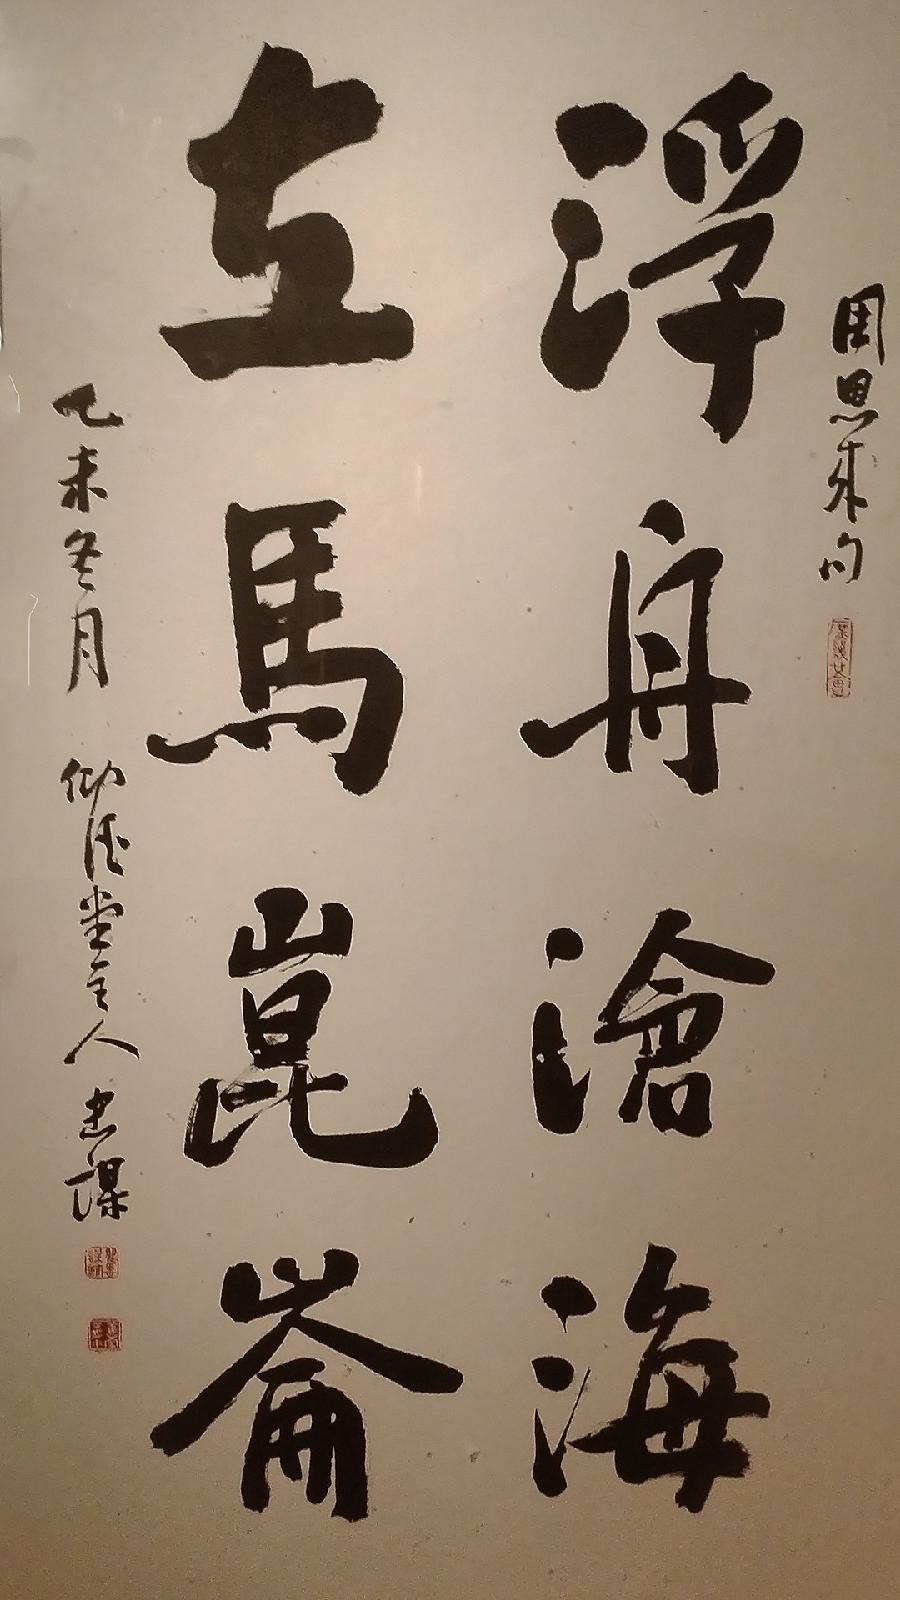 周思來句
浮舟滄海
立馬崑崙
乙未冬月 仰德堂主人 忠謀